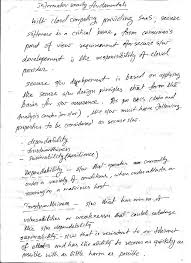 Information security fundamentals
With cloud computing providing SaaS, secure
software is a critical issue, from consumer's
point of view requirement for secure s/w
development is the responsibility of cloud
provider.
secure s/w development is based on applying
the secure s/w design principles that form the
basis for s/w assurance. The
Analysis center for s/w) the s/w must have following
properties to be considered as secure s/w.
- dependability
- Trustworthiness
- survivability (Resilience)
Dependability - s/w that operates correctly
under a variety of conditions, when under attack or
running on a malicious host.
Trustworthiness - s/w that has minimum
vulnerabilities or weaknesses that could sabotage
the s/w dependability
survivability - s/w that is resistant to or tolerant
of attacks and has the ability to recover as quickly as
possible with as little harm as possible.